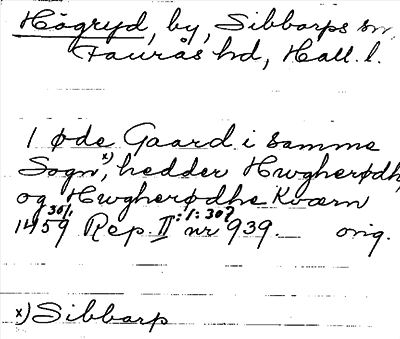 Högryd, by, Sibbarps sn
Faurås hd, Hall. l.
1 øde Gaard i samme
Sogn x), hedder Hwgherødh,
og Hwgherødhe Kværn
1459 30/1 Rep. II :1: 30? nr 939. — orig.
x) Sibbarp